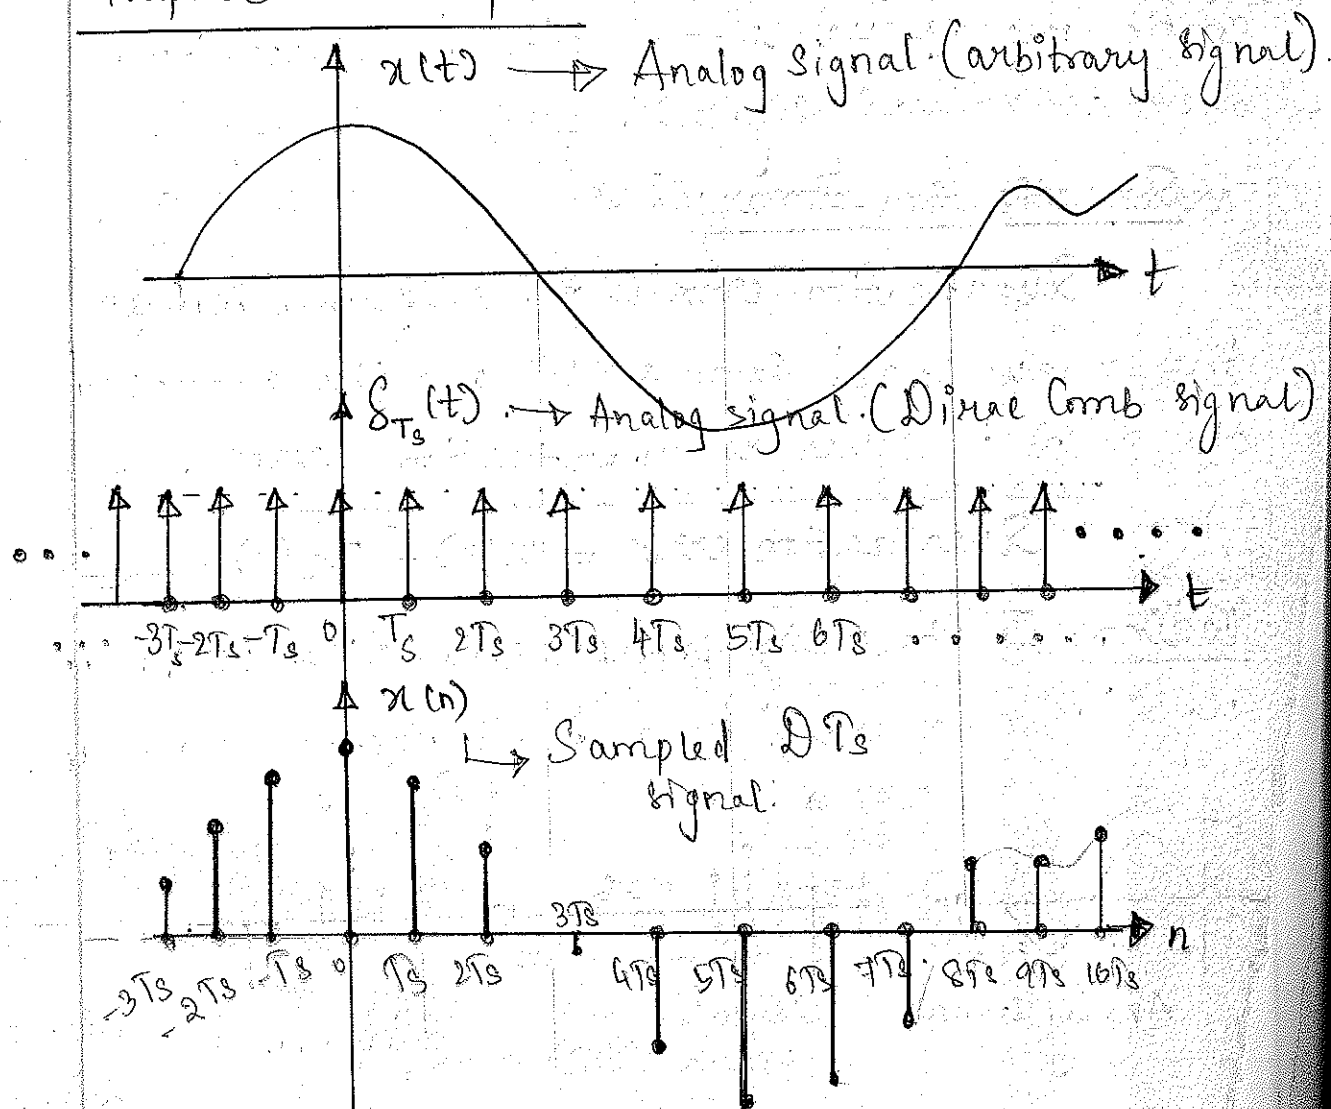 x(t) → Analog signal. (arbitrary signal).
t
δ_Ts(t). → Analog signal. (Dirac Comb signal)
t
-3Ts -2Ts -Ts 0 Ts 2Ts 3Ts 4Ts 5Ts 6Ts . . . . . .
x(n)
↳ Sampled DTs
signal.
3Ts
n
-3Ts -2Ts -Ts 0 Ts 2Ts 4Ts 5Ts 6Ts 7Ts 8Ts 9Ts 10Ts